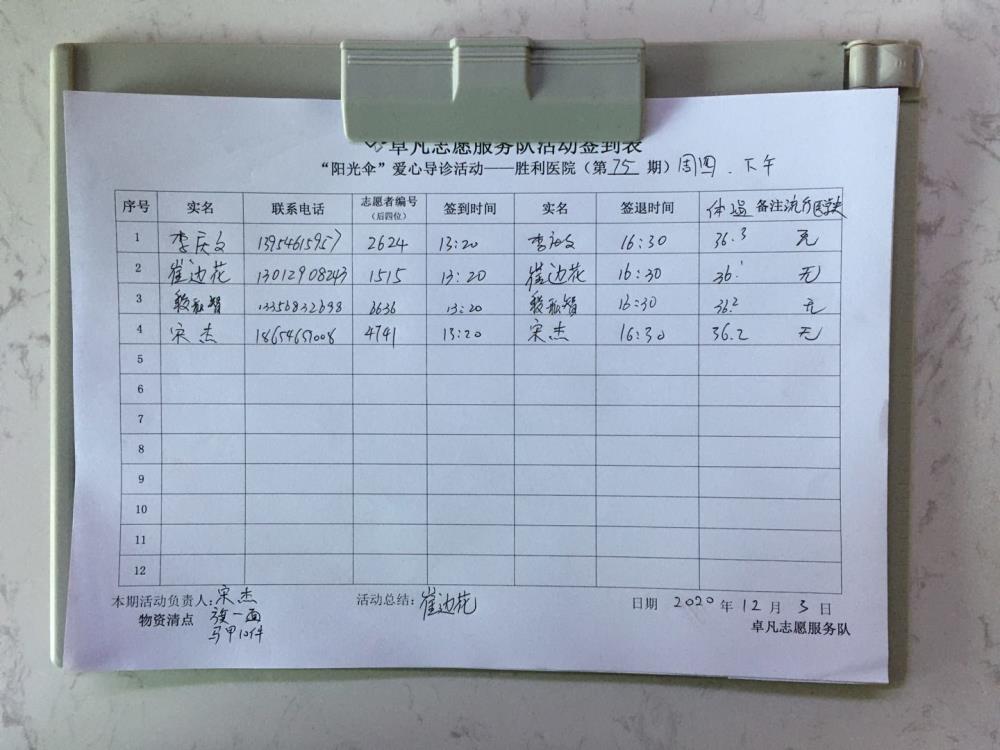 卓凡志愿服务队活动签到表
“阳光伞”爱心导诊活动——胜利医院（第75期）周四.下午
序号 实名 联系电话 志愿者编号（后四位） 签到时间 实名 签退时间 体温 备注流行病学史
1 李庆文 13954615957 2624 13:20 李庆文 16:30 36.3 无
2 崔边花 13012908243 1515 13:20 崔边花 16:30 36. 无
3 13356832698 6636 13:20 16:30 36.2 无
4 宋杰 18654651008 4741 13:20 宋杰 16:30 36.2 无
5
6
7
8
9
10
11
12
本期活动负责人：宋杰 活动总结：崔边花 日期 2020年12月3日
物资清点 旗一面 卓凡志愿服务队
马甲10件